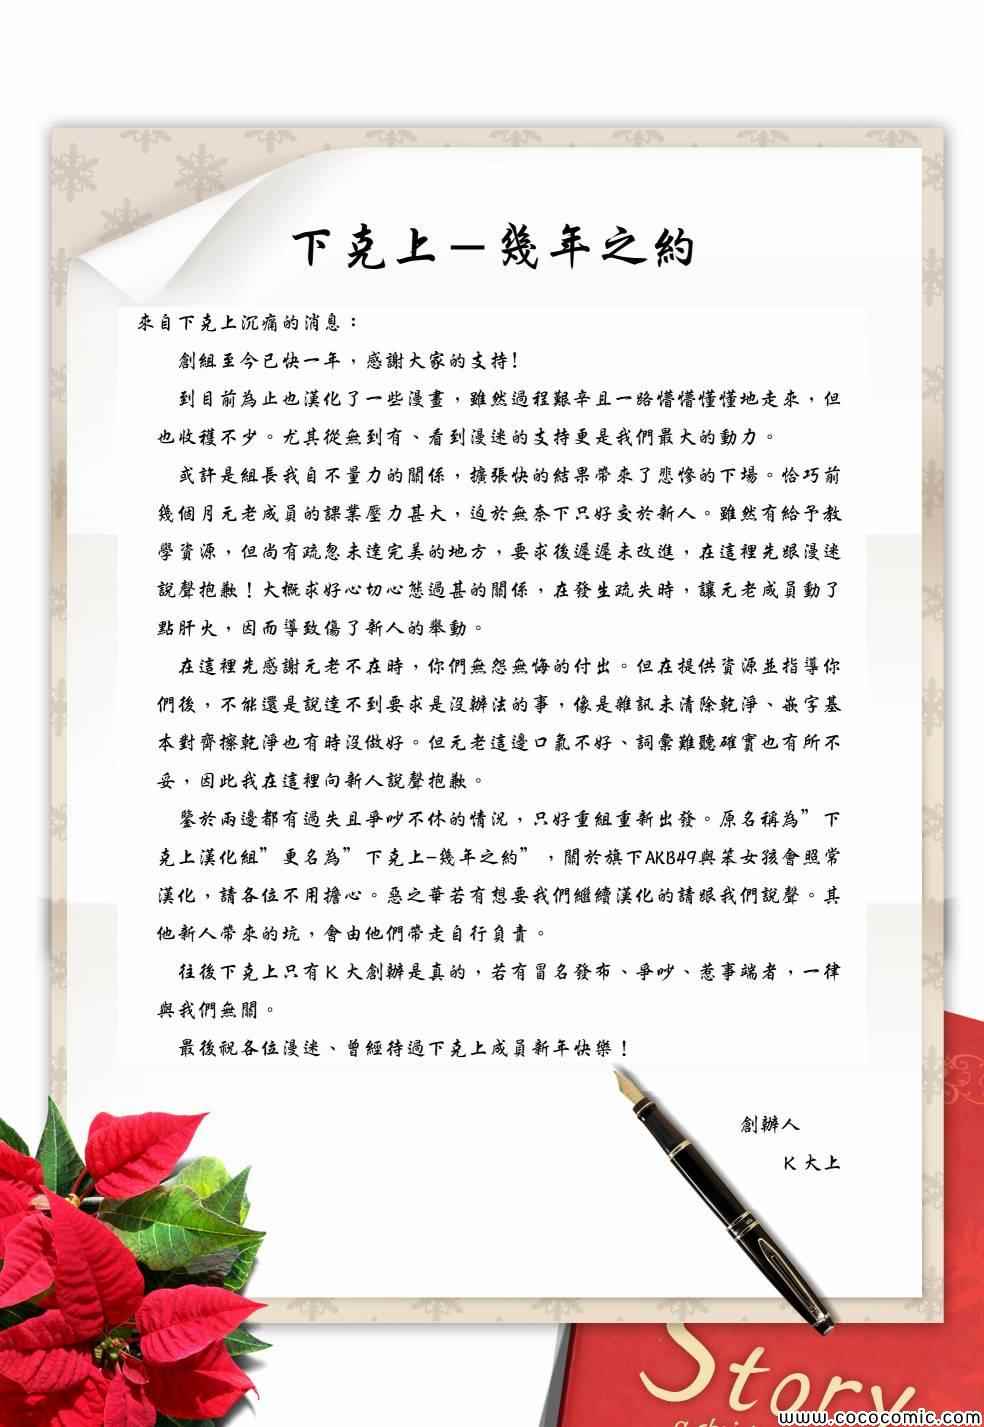 下克上－幾年之約
來自下克上沉痛的消息：
創組至今已快一年，感謝大家的支持!
到目前為止也漢化了一些漫畫，雖然過程艱辛且一路懵懵懂懂地走來，但
也收穫不少。尤其從無到有、看到漫迷的支持更是我們最大的動力。
或許是組長我自不量力的關係，擴張快的結果帶來了悲慘的下場。恰巧前
幾個月元老成員的課業壓力甚大，迫於無奈下只好交於新人。雖然有給予教
學資源，但尚有疏忽未達完美的地方，要求後遲遲未改進，在這裡先跟漫迷
說聲抱歉！大概求好心切心態過甚的關係，在發生疏失時，讓元老成員動了
點肝火，因而導致傷了新人的舉動。
在這裡先感謝元老不在時，你們無怨無悔的付出。但在提供資源並指導你
們後，不能還是說達不到要求是沒辦法的事，像是雜訊未清除乾淨、嵌字基
本對齊擦乾淨也有時沒做好。但元老這邊口氣不好、詞彙難聽確實也有所不
妥，因此我在這裡向新人說聲抱歉。
鑒於兩邊都有過失且爭吵不休的情況，只好重組重新出發。原名稱為”下
克上漢化組”更名為”下克上-幾年之約”，關於旗下AKB49與笨女孩會照常
漢化，請各位不用擔心。惡之華若有想要我們繼續漢化的請跟我們說聲。其
他新人帶來的坑，會由他們帶走自行負責。
往後下克上只有K大創辦是真的，若有冒名發布、爭吵、惹事端者，一律
與我們無關。
最後祝各位漫迷、曾經待過下克上成員新年快樂！
創辦人
K大上
Story
www.cococomic.com